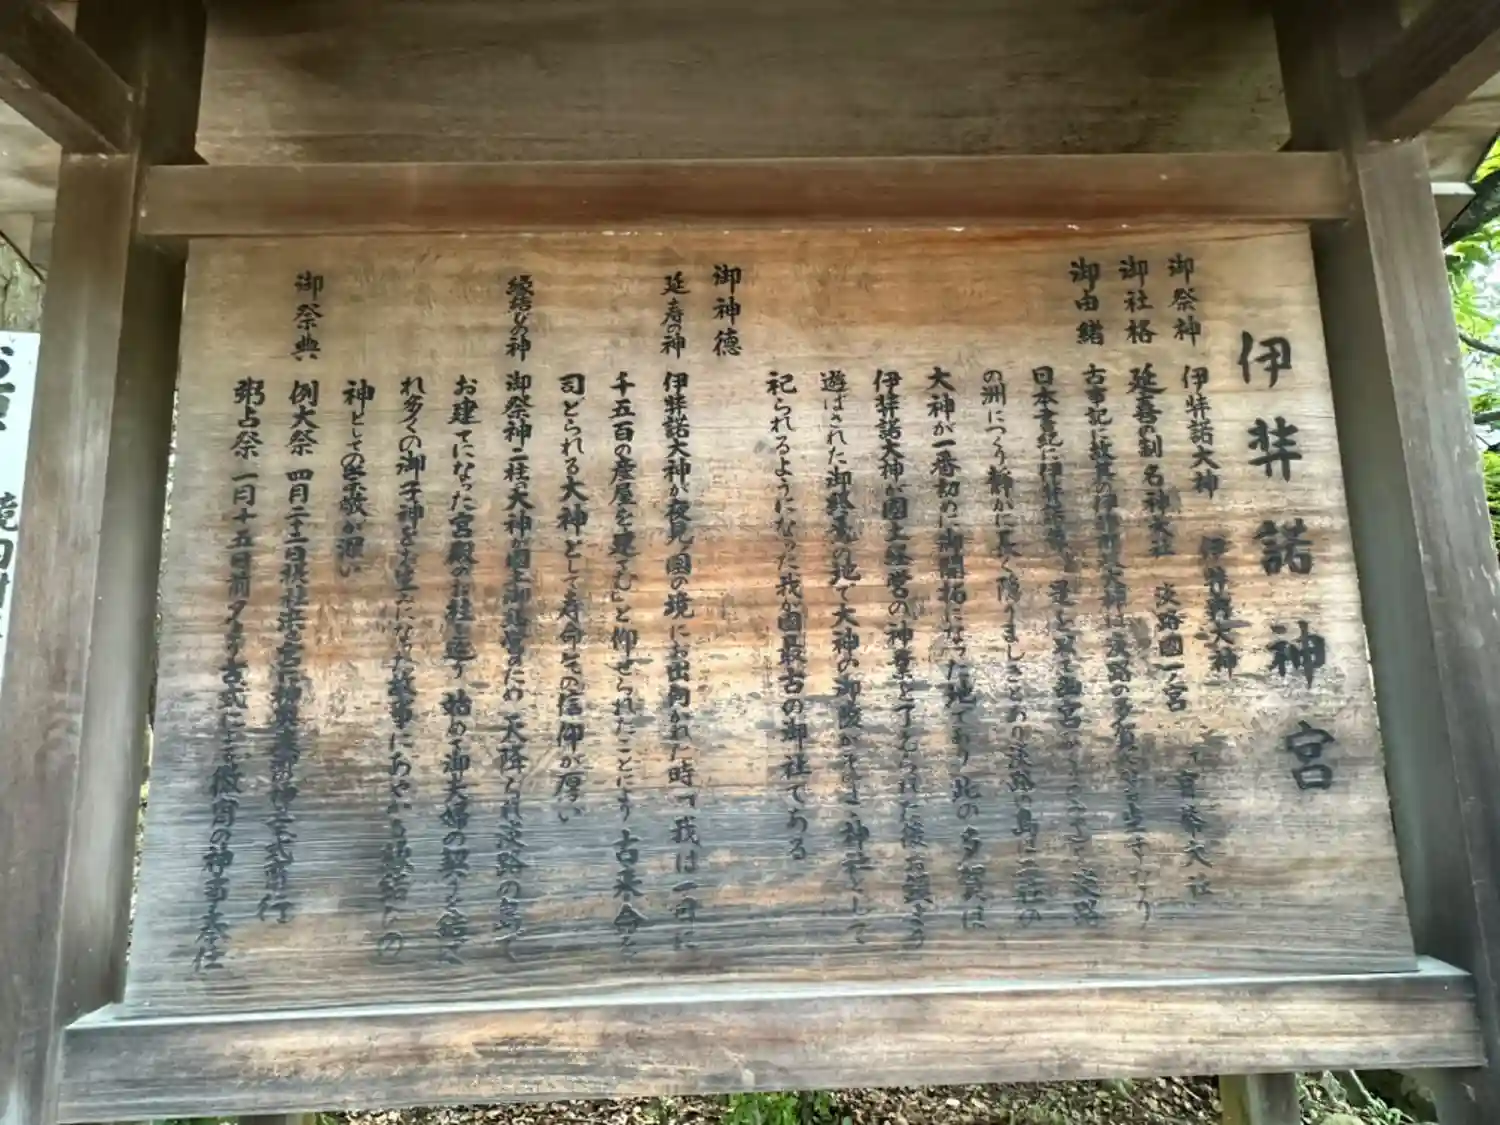 伊弉諾神宮
御祭神 伊弉諾大神 伊弉冉大神
御社格 延喜の制 名神大社 淡路國一ノ宮 官幣大社
御由緒 古事記に故其の伊弉諾大神は淡路の多賀に
日本書紀に 淡路
の洲につくり静かに長く隠りましきとあり淡路の島は二柱の
大神が一番初めに御開拓になった地であり此の多賀は
伊弉諾大神が國土経営の神業を了えられた後お鎮まり
遊ばされた御終焉の地で大神の御陵がそのまゝ神社として
祀られるようになった我が國最古の御社である
御神徳
延寿の神 伊弉諾大神が夜見の国の境にお出向かれた時「我は一日に
千五百の産屋を建てむ」と仰せられたことにより古来命を
司どられる大神として寿命の信仰が厚い
縁結びの神 御祭神二柱の大神が國土御経営のため天降られ淡路の島で
お建てになった宮殿の御柱を廻り始めて御夫婦の契りを結ば
れ多くの御子神をお生みになった故事にあやかる縁結びの
神としての崇敬が深い
御祭典 例大祭 四月二十二日 行
粥占祭 一月十五日前夕より古式による徹宵の神事奉仕